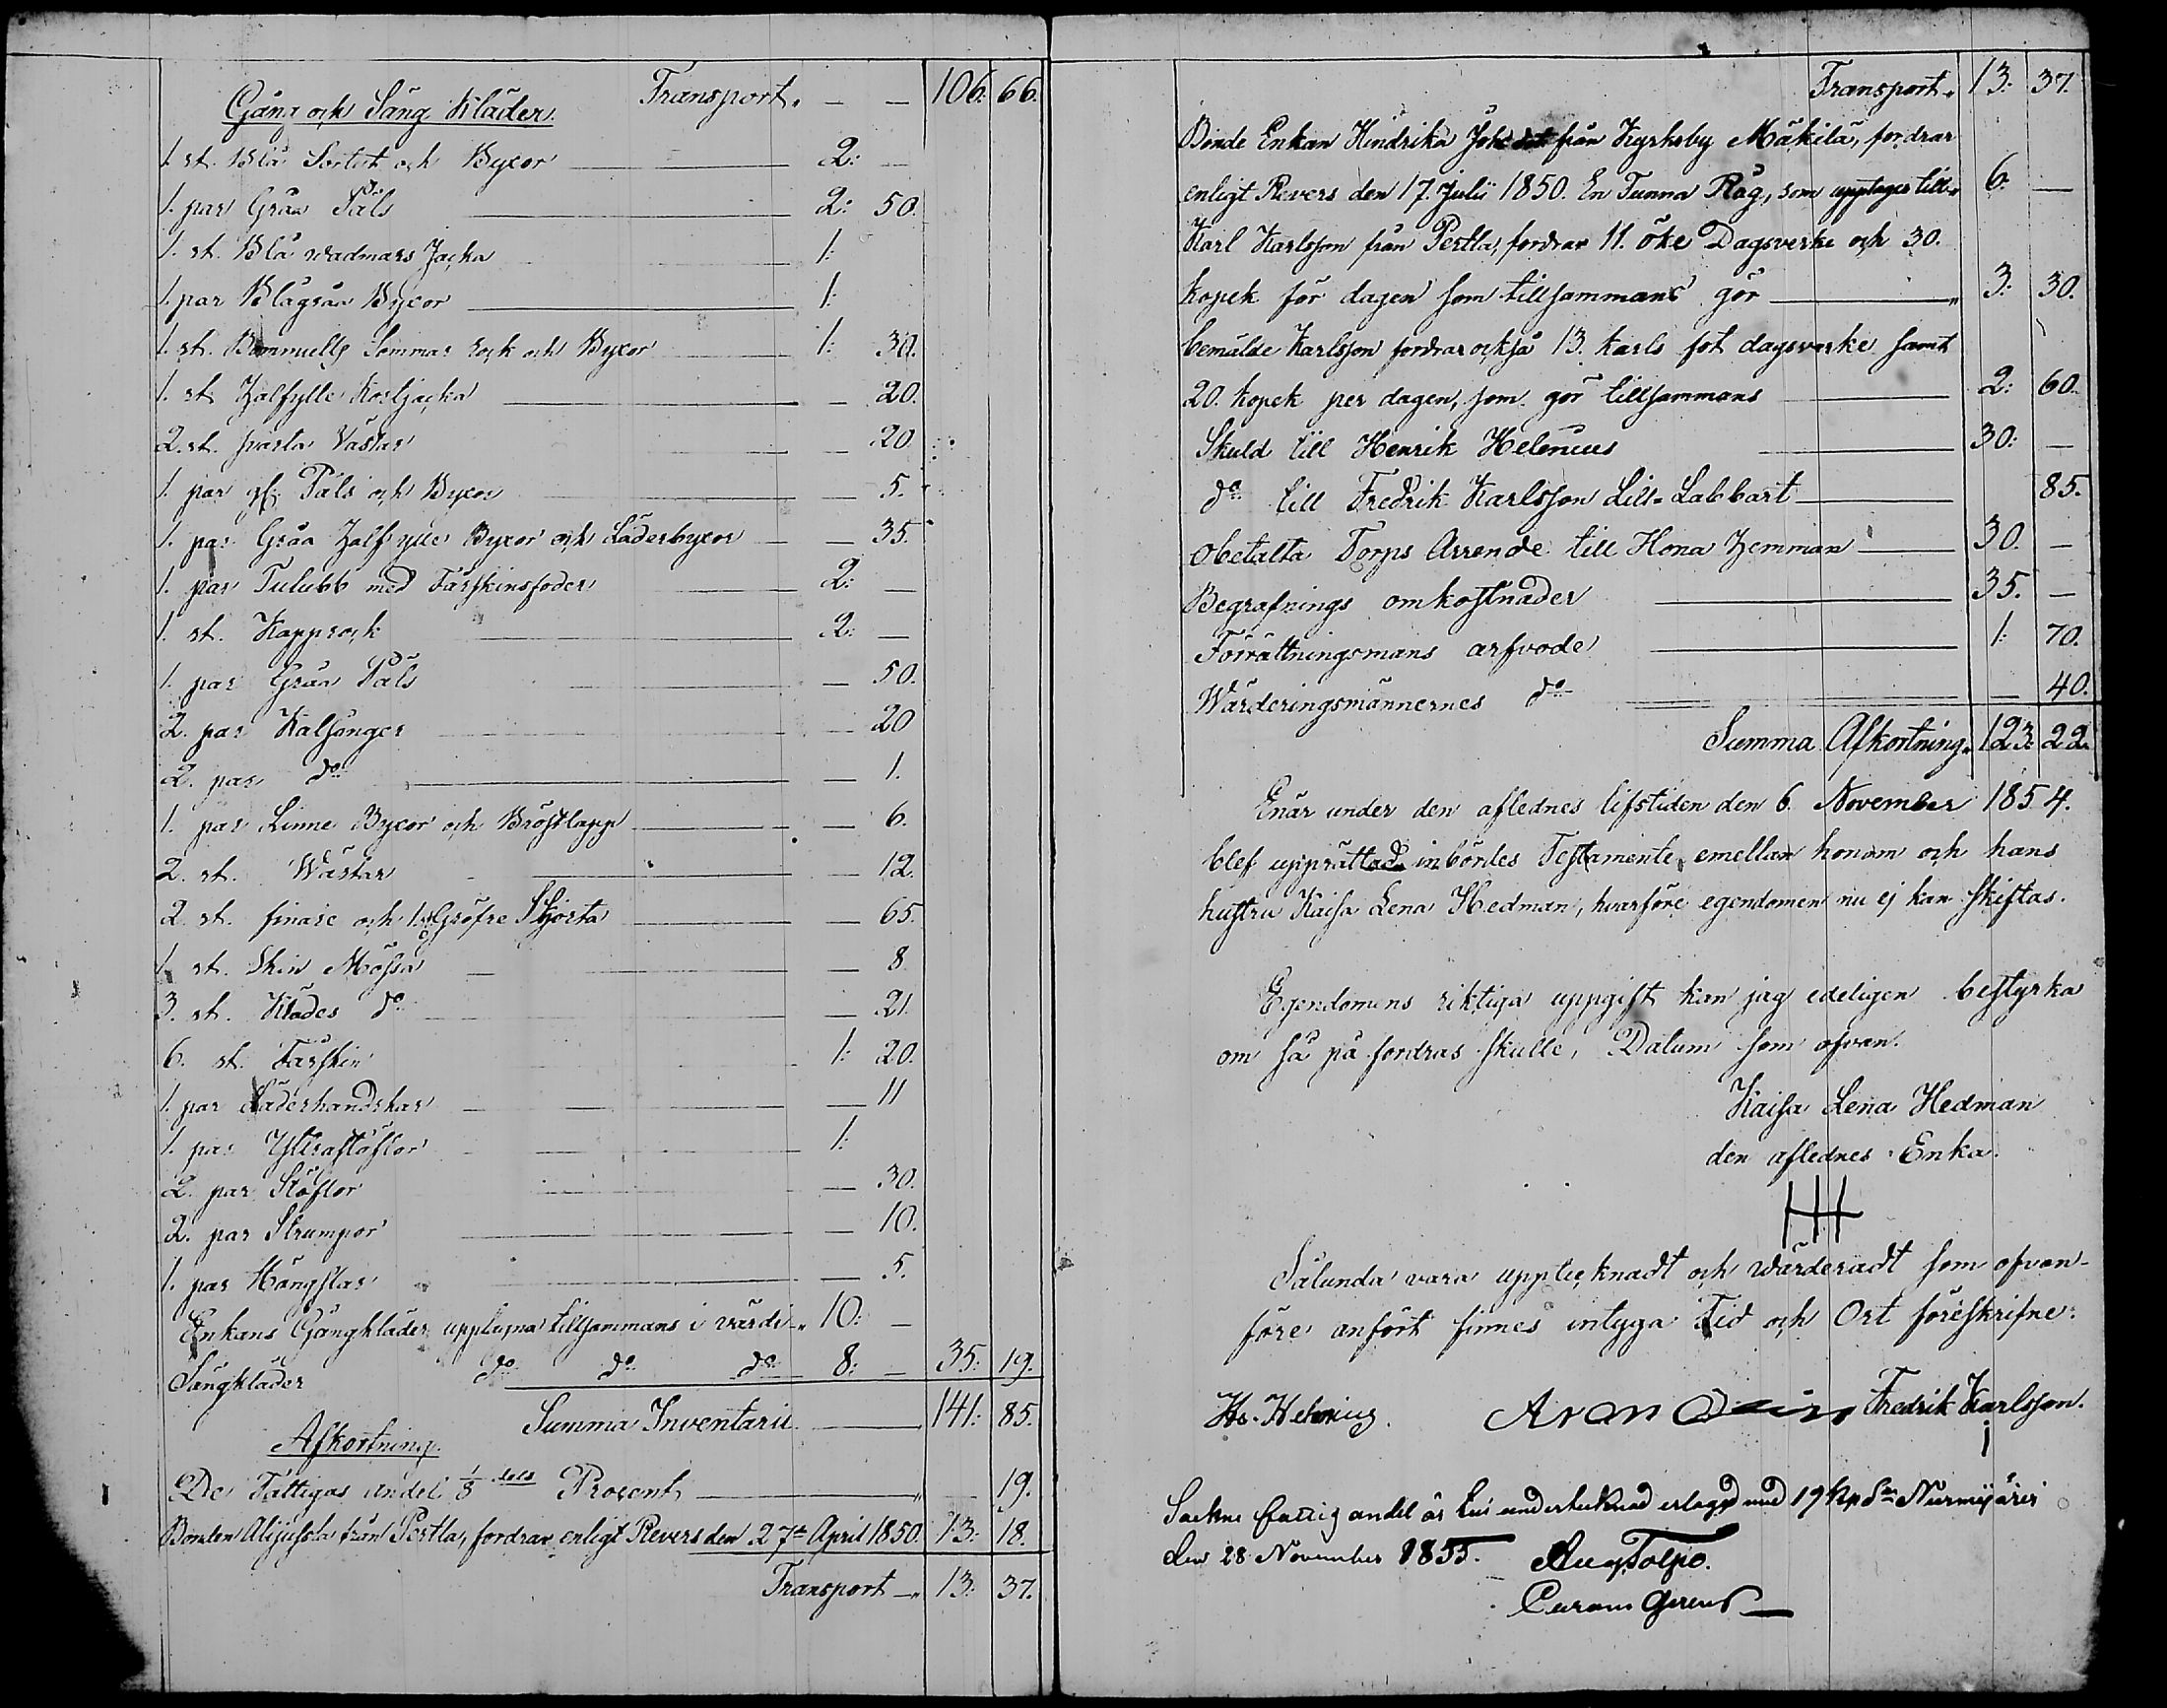 Transport " — — 106: 66.
Gång och Säng Kläder.
1. st. Blå Sortut och Byxor — 2: —
1. par Gråa Päls — 2: 50.
1. st. Blå wadmars Jacka — 1:
1. par Blågråa Byxor — 1:
1. st. Bommulls Sommar rock och Byxor — 1: 30.
1. st. Halfylle Kortjacka — — 20.
2. st. Västar — — 20
1. par Päls och Byxor — — 5.
1. par Gråa Halfylle Byxor och Läderbyxor — — 35.
1. par Tulubb med Fårskinsfoder — 2: —
1. st. Kapprock — 2: —
1. par Gråa Päls — — 50.
2. par Kalsonger — — 20
2. par do — — 1.
1. par Linne Byxor och Bröstlapp — — 6.
2. st. Wästar — — 12.
2. st. finare och 1. st Gröfre Skjorta — — 65.
1. st. Skin Mössa — — 8
3. st. Klädes do — — 21.
6. st. Fårskin 1: 20.
1. par Läderhandskar — — 11
1. par — 1:
2. par Stöflor — — 30.
2. par Strumpor — — 10.
1. par — 5.
Enkans Gångkläder upptagna tillsammans i värde " 10: —
Sängkläder do do do 8: — 35: 19.
Summa Inventarii — 141: 85.
Afkortning.
De Fattigas andel 1/8 dels Procent — — 19.
Bonden från Pertla, fordrar enligt Revers den 27de April 1850. 13: 18.
Transport — " 13: 37.
Transport " 13: 37.
Bonde Enkan Hindrika från Kyrkoby Mäkilä, fordrar
enligt Revers den 17. Julii 1850. En Tunna Råg, som upptages till " 6. —
Karl Karlsson från Pertla, fordrar 11. öke Dagsverke och 30.
kopek för dagen som tillsammans gör — " 3: 30.
bemälde Karlsson fordrar också 13. karls fot dagsverke samt
20. kopek per dagen, som gör tillsammans — 2: 60.
Skuld till Henrik Helenius — 30: —
do till Fredrik Karlsson Lill-Labbart — 85.
Obetalta Torps Arrende till Hona Hemman — 30. —
Begrafnings omkostnader — 35. —
Förrättningsmans arfvode — 1: 70.
Wärderingsmännernes do — — 40.
Summa Afkortning " 123: 22.
Enär under den aflednes lifstiden den 6. November 1854.
blef upprättad inbördes Testamente emellan honom och hans
hustru Kaisa Lena Hedman, hvarföre egendomen nu ej kan skiftas.
Egendomens riktiga uppgift kan jag edeligen bestyrka
om så på fordras skulle, Datum som ofvan.
Kaisa Lena Hedman
den aflednes Enka.
Sålunda vara upptecknadt och wärderadt som ofvan-
före anfört finnes intyga Tid och Ort föreskrifne:
Hr. Helenius. Fredrik Karlsson.
andel är undertecknad erlagd med 19 Kop Sr Nurmijärvi
den 28 November 1855.
Curam Gerens